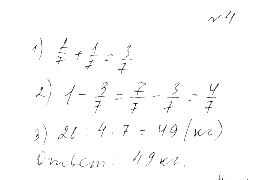 №4
1) 2/7 + 1/7 = 3/7
2) 1 - 3/7 = 7/7 - 3/7 = 4/7
3) 28 : 4 · 7 = 49 (кг)
Ответ: 49 кг.